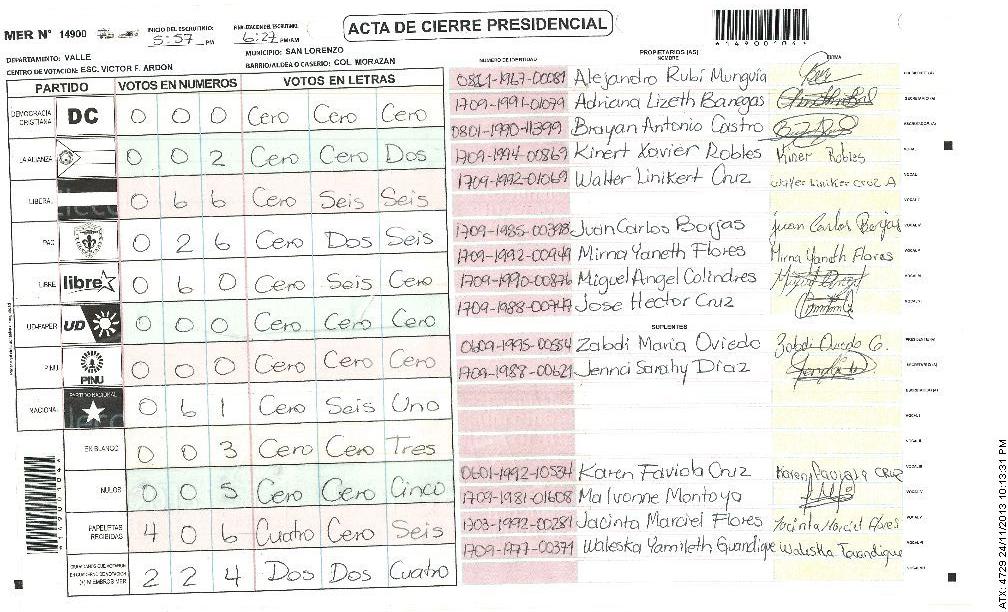 MER N° 14900
INICIO DEL ESCRUTINIO:
5:57 PM
6:27 PM/AM
ACTA DE CIERRE PRESIDENCIAL
*149001064*
DEPARTAMENTO: VALLE
MUNICIPIO: SAN LORENZO
CENTRO DE VOTACION: ESC. VICTOR F. ARDON
BARRIO/ALDEA O CASERIO: COL MORAZAN
PARTIDO VOTOS EN NUMEROS VOTOS EN LETRAS
DEMOCRACIA CRISTIANA DC 0 0 0 Cero Cero Cero
LA ALIANZA 0 0 2 Cero Cero Dos
LIBERAL 0 6 6 Cero Seis Seis
PAC 0 2 6 Cero Dos Seis
LIBRE libre 0 6 0 Cero Seis Cero
UD-FAPER UD 0 0 0 Cero Cero Cero
PINU PINU 0 0 0 Cero Cero Cero
NACIONAL PARTIDO NACIONAL 0 6 1 Cero Seis Uno
EN BLANCO 0 0 3 Cero Cero Tres
NULOS 0 0 5 Cero Cero Cinco
PAPELETAS RECIBIDAS 4 0 6 Cuatro Cero Seis
2 2 4 Dos Dos Cuatro
PROPIETARIOS (AS)
NUMERO DE IDENTIDAD NOMBRE FIRMA
0821-1967-00081 Alejandro Rubi Munguia
1709-1991-01079 Adriana Lizeth Banegas
0801-1990-11399 Brayan Antonio Castro
1709-1994-00869 Kinert Xavier Robles Kiner Robles
1709-1992-01069 Walter Linikert Cruz Walter Liniker Cruz A
1709-1985-00398 Juan Carlos Borjas Juan Carlos Borjas
1709-1992-00949 Mirna Yaneth Flores Mirna Yaneth Flores
1709-1990-00876 Miguel Angel Colindres
1709-1988-00747 Jose Hector Cruz
SUPLENTES
0609-1995-00554 Zabdi Maria Oviedo Zabdi Oviedo G.
1709-1988-00621 Jenni Sarahy Diaz
0601-1992-10534 Karen Faviola Cruz Karen Faviola Cruz
1709-1981-01608 Ma Ivonne Montoya
1703-1992-00281 Jacinta Marciel Flores Jacinta Marciel Flores
1709-1977-00371 Waleska Yamileth Guandique Waleska Guandique
ATX: 4729 24/11/2013 10:13:31 PM